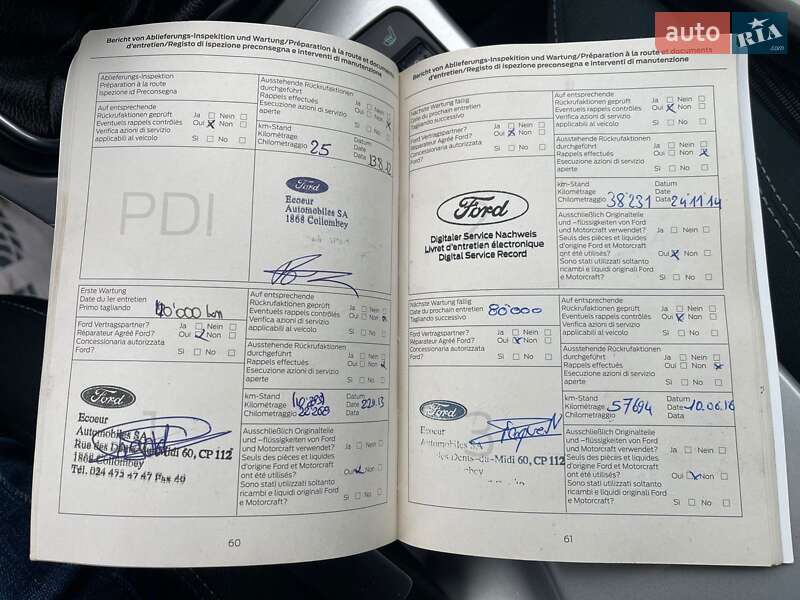 auto RIA.com
Bericht von Ablieferungs-Inspekition und Wartung/Préparation à la route et documents
d'entretien/Registo di ispezione preconsegna e interventi di manutenzione
Ablieferungs-Inspektion
Préparation à la route
Ispezione id Preconsegna
Ausstehende Rückrufaktionen
durchgeführt Ja Nein
Rappels effectués Oui Non
Esecuzione azioni di servizio
aperte Sì No
Auf entsprechende
Rückrufaktionen geprüft Ja Nein
Eventuels rappels contrôlés Oui Non
Verifica azioni di servizio
applicabili al veicolo Sì No
km-Stand
Kilométrage
Chilometraggio 25
Datum
Date
Data
PDI
Ford
Ecoeur
Automobiles SA
1868 Collombey
Erste Wartung
Date du 1er entretien
Primo tagliando
Auf entsprechende
Rückrufaktionen geprüft Ja Nein
Eventuels rappels contrôlés Oui Non
Verifica azioni di servizio
applicabili al veicolo Sì No
Ford Vertragspartner? Ja Nein
Réparateur Agréé Ford? Oui Non
Concessionaria autorizzata
Ford? Sì No
Ausstehende Rückrufaktionen
durchgeführt Ja Nein
Rappels effectués Oui Non
Esecuzione azioni di servizio
aperte Sì No
Ford
Ecoeur
Automobiles SA
Rue des Dents-du-Midi 60, CP 112
1868 Collombey
Tél. 024 473 47 47 Fax 40
km-Stand
Kilométrage
Chilometraggio
Datum
Date
Data
Ausschließlich Originalteile
und –flüssigkeiten von Ford
und Motorcraft verwendet? Ja Nein
Seuls des pièces et liquides
d'origine Ford et Motorcraft
ont été utilisés? Oui Non
Sono stati utilizzati soltanto
ricambi e liquidi originali Ford
e Motorcraft? Sì No
60
Bericht von Ablieferungs-Inspekition und Wartung/Préparation à la route et documents
d'entretien/Registo di ispezione preconsegna e interventi di manutenzione
Nächste Wartung fällig
Date du prochain entretien
Tagliando successivo
Auf entsprechende
Rückrufaktionen geprüft Ja Nein
Eventuels rappels contrôlés Oui Non
Verifica azioni di servizio
applicabili al veicolo Sì No
Ford Vertragspartner? Ja Nein
Réparateur Agréé Ford? Oui Non
Concessionaria autorizzata
Ford? Sì No
Ausstehende Rückrufaktionen
durchgeführt Ja Nein
Rappels effectués Oui Non
Esecuzione azioni di servizio
aperte Sì No
Ford
Digitaler Service Nachweis
Livret d'entretien électronique
Digital Service Record
km-Stand
Kilométrage
Chilometraggio 38'231
Datum
Date
Data 24.11.14
Ausschließlich Originalteile
und –flüssigkeiten von Ford
und Motorcraft verwendet? Ja Nein
Seuls des pièces et liquides
d'origine Ford et Motorcraft
ont été utilisés? Oui Non
Sono stati utilizzati soltanto
ricambi e liquidi originali Ford
e Motorcraft? Sì No
Nächste Wartung fällig
Date du prochain entretien
Tagliando successivo 80'000
Auf entsprechende
Rückrufaktionen geprüft Ja Nein
Eventuels rappels contrôlés Oui Non
Verifica azioni di servizio
applicabili al veicolo Sì No
Ford Vertragspartner? Ja Nein
Réparateur Agréé Ford? Oui Non
Concessionaria autorizzata
Ford? Sì No
Ausstehende Rückrufaktionen
durchgeführt Ja Nein
Rappels effectués Oui Non
Esecuzione azioni di servizio
aperte Sì No
Ford
Ecoeur
Automobiles SA
des Dents-du-Midi 60, CP 112
km-Stand
Kilométrage
Chilometraggio 57694
Datum
Date
Data 10.06.16
Ausschließlich Originalteile
und –flüssigkeiten von Ford
und Motorcraft verwendet? Ja Nein
Seuls des pièces et liquides
d'origine Ford et Motorcraft
ont été utilisés? Oui Non
Sono stati utilizzati soltanto
ricambi e liquidi originali Ford
e Motorcraft? Sì No
61